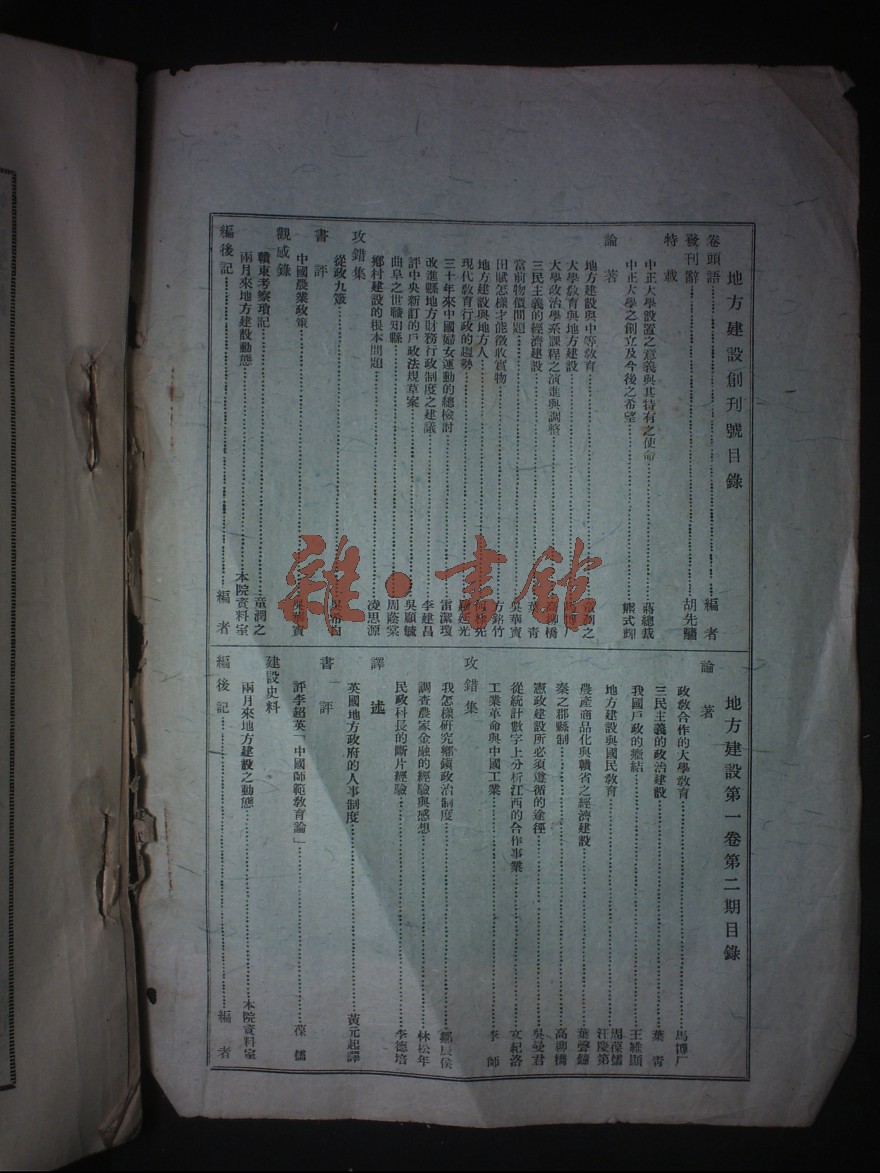 地方建設創刊號目錄
卷頭語 編者
發刊辭 胡先驌
特載
中正大學設置之意義與其特有之使命 蔣總裁
中正大學之創立及今後之希望 熊式輝
論著
地方建設與中等敎育 童潤之
大學敎育與地方建設 馬博厂
大學政治學系課程之演進與調整 高柳橋
三民主義的經濟建設 葉青
當前物價問題 吳華寶
田賦怎樣才能徵收實物 方銘竹
地方建設與地方人
現代敎育行政的趨勢
三十年來中國婦女運動的總檢討 雷潔瓊
改進縣地方財務行政制度之建議 李建昌
評中央新訂的戶政法規草案 吳顧毓
曲阜之世職知縣 周蔭棠
鄉村建設的根本問題 凌思源
攻錯集
從政九箴
書評
中國農業政策 吳華寶
觀感錄
贛東考察瑣記 童潤之
兩月來地方建設動態 本院資料室
編後記 編者
地方建設第一卷第二期目錄
論著
政敎合作的大學敎育 馬博厂
三民主義的政治建設 葉青
我國戶政的癥結 王維顯
地方建設與國民敎育 周葆儒 汪慶第
農產商品化與贛省之經濟建設 葉聲鐘
秦之郡縣制 高柳橋
憲政建設所必須遵循的途徑 吳曼君
從統計數字上分析江西的合作事業 文紀洛
工業革命與中國工業 李師
攻錯集
我怎樣硏究鄉鎮政治制度 鄒辰侯
調查農家金融的經驗與感想 林松年
民政科長的斷片經驗 李德培
譯述
英國地方政府的人事制度 黃元起譯
書評
評李超英「中國師範敎育論」 葆儒
建設史料
兩月來地方建設之動態 本院資料室
編後記 編者
雜·書館